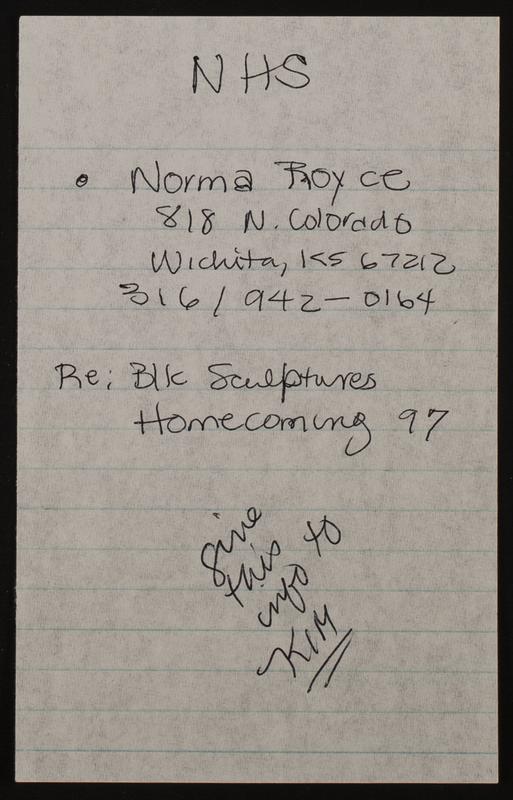 NHS
• Norma Royce
818 N. Colorado
Wichita, KS 67212
316/942-0164
Re: Blk Sculptures
Homecoming 97
Give
this to
info
KIM